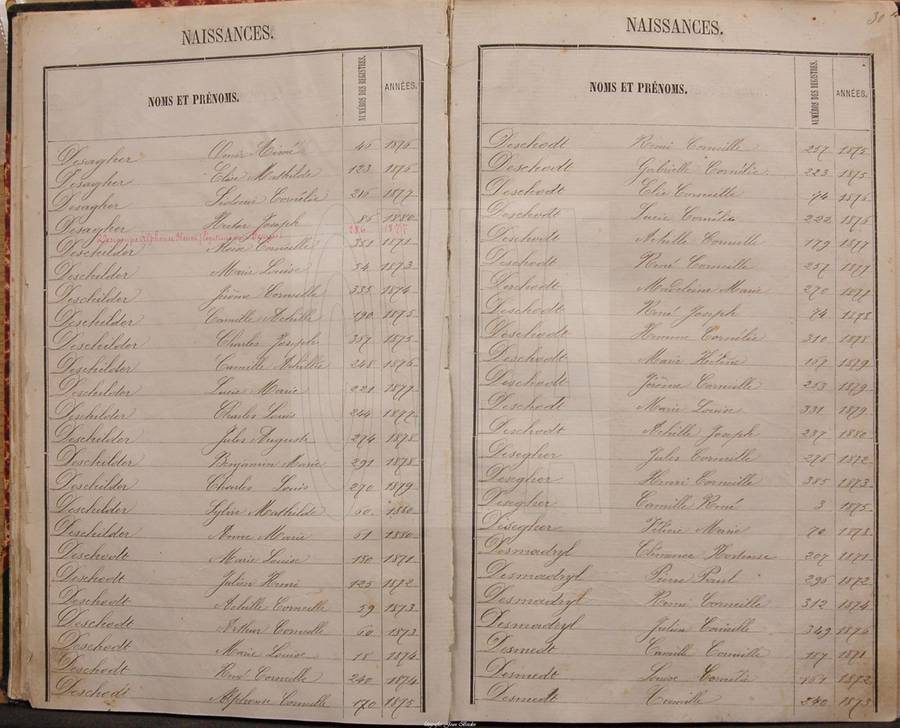 NAISSANCES.
NOMS ET PRÉNOMS. NUMÉROS DES REGISTRES. ANNÉES.
Desagher Aimé 40 1876
Desagher Elise Mathilde 123 1876
Desagher Sidonie Cornélie 216 1877
Desagher Hector Joseph 86 1880
Alphonse Henri 286 1877
Deschilder Corneille 351 1871
Deschilder Marie Louise 54 1873
Deschilder Jérôme Corneille 335 1874
Deschilder Camille Achille 190 1875
Deschilder Charles Joseph 357 1875
Deschilder Camille Achille 248 1876
Deschilder Lucie Marie 221 1877
Deschilder Charles Louis 244 1877
Deschilder Jules Auguste 274 1878
Deschilder Benjamin Marie 291 1878
Deschilder Charles Louis 270 1879
Deschilder Sylvie Mathilde 60 1880
Deschilder Anne Marie 61 1880
Deschodt Marie Louise 180 1871
Deschodt Julien Henri 125 1872
Deschodt Achille Corneille 59 1873
Deschodt Arthur Corneille 60 1873
Deschodt Marie Louise 18 1874
Deschodt René Corneille 240 1874
Deschodt Alphonse Corneille 170 1875
30
NAISSANCES.
NOMS ET PRÉNOMS. NUMÉROS DES REGISTRES. ANNÉES.
Deschodt Rémi Corneille 257 1875
Deschodt Gabrielle Cornélie 223 1875
Deschodt Elie Corneille 74 1876
Deschodt Lucie Cornélie 222 1876
Deschodt Achille Corneille 179 1877
Deschodt René Corneille 257 1877
Deschodt Madeleine Marie 270 1877
Deschodt René Joseph 74 1878
Deschodt Hermine Cornélie 310 1878
Deschodt Marie Hélène 157 1879
Deschodt Jérôme Corneille 253 1879
Deschodt Marie Louise 331 1879
Deschodt Achille Joseph 237 1880
Desegher Jules Corneille 276 1872
Desegher Henri Corneille 385 1873
Desegher Camille René 3 1875
Desegher Marie 70 1878
Desmadryl Clémence Hortense 207 1871
Desmadryl Pierre Paul 296 1872
Desmadryl Rémi Corneille 312 1874
Desmadryl Julien Camille 349 1876
Desmedt Camille Corneille 157 1871
Desmedt Louise Cornélie 161 1872
Desmedt Camille 340 1873